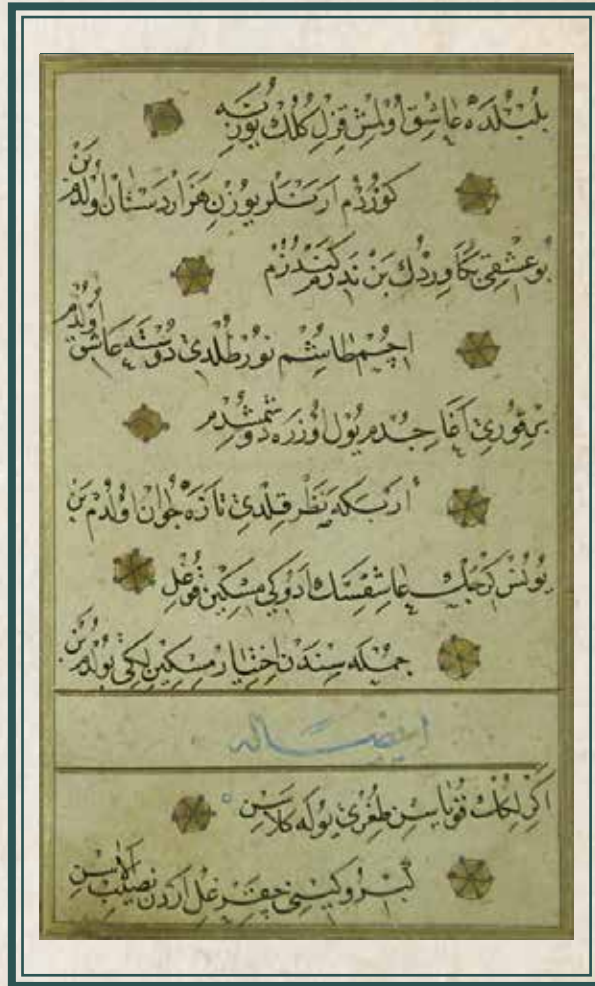 بُلْبُلْدَه عَاشِقْ اُولْمِشْ قِزِلْ كُلُكْ يُوزُنَه
كُورُرُمْ اَرَنْلَرْ يُوزُنِ هَزَار دَسْتَانْ اُولْدُمْ بَنْ
بُو عِشْقِي بَكَا وِرْدُكْ بَنْ نَدَرَمْ كَنْدُزُمْ
اِچُمْ طَاشُمْ نُورْ طُلْدِي دُوسْتَه عَاشِقْ اُولْدُمْ
بِرْ قُورِي اَغَاجِدُمْ يُولْ اُوزَرَه دُوشْمِشْدُمْ
اَرْ بَكَه نَظَرْ قِلْدِي تَازَه جُوانْ اُولْدُمْ بَنْ
يُونُسْ كَرْچَكْ عَاشِقْسَكْ اَدُوكِي مِسْكِينْ قُوغِلْ
جُمْلَه سِنْدَنْ اِخْتِيَارْ مِسْكِينْلِكِي بُولْدُمْ بَنْ
ايضا له
اَكِرْلِكُكْ قُويَاسِنْ طُغْرِي يُولَه كَلَاسِنْ
كِبْرُ و كِينِي چِقَرْغِلْ اَرْدَنْ نَصِيبْ اَلَاسِنْ